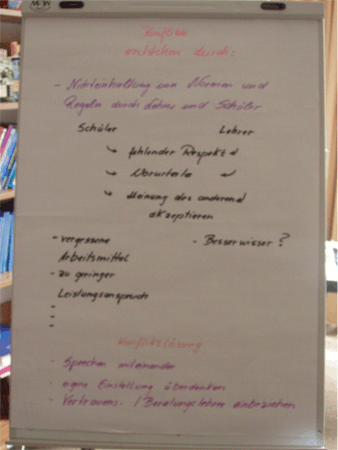 Konflikte
entstehen durch:
- Nichteinhaltung von Normen und
Regeln durch Lehrer und Schüler
Schüler Lehrer
fehlender Respekt
Vorurteile
Meinung des anderen
akzeptieren
- vergessene - Besserwisser?
Arbeitsmittel
- zu geringer
Leistungsanspruch
-
-
-
Konfliktlösung
- Sprechen miteinander
- eigene Einstellung überdenken
- Vertrauens- / Beratungslehrer einbeziehen